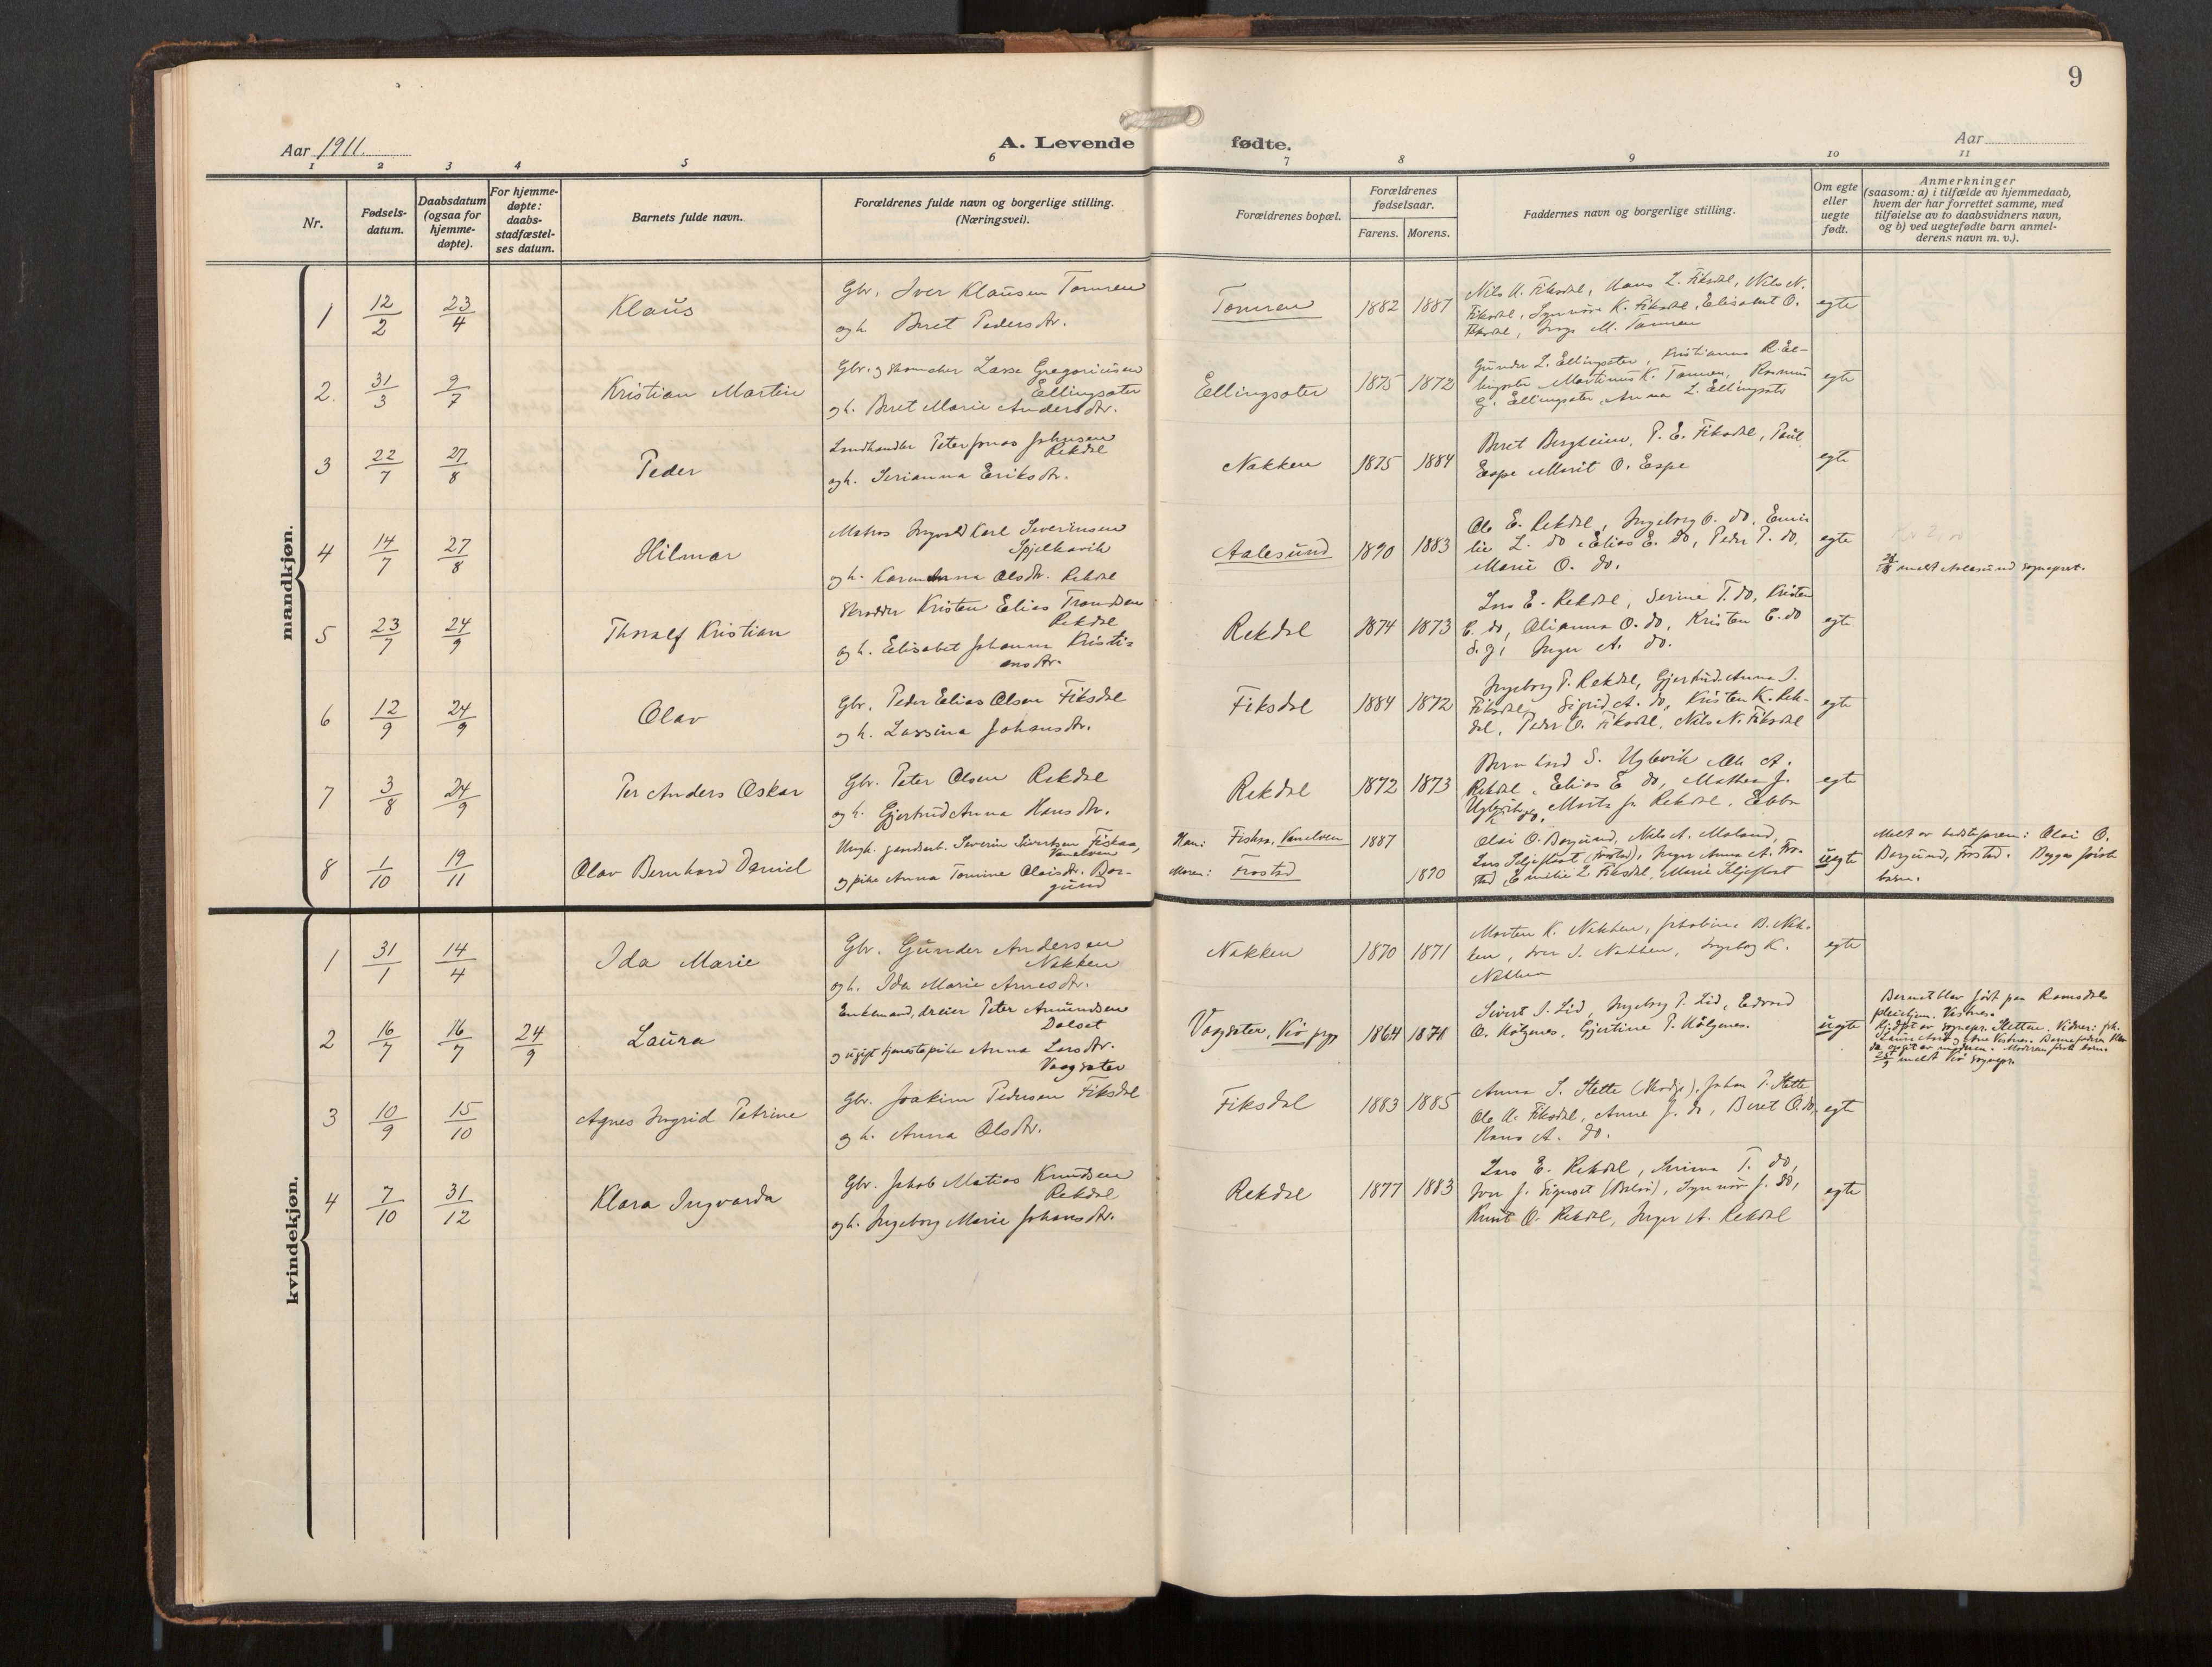 9
Aar 1911.
A. Levende fødte.
Aar
1 2 3 4 5 6 7 8 9 10 11
Nr.
Fødsels-
datum.
Daabsdatum
(ogsaa for
hjemme-
døpte).
For hjemme-
døpte:
daabs-
stadfæstel-
ses datum.
Barnets fulde navn.
Forældrenes fulde navn og borgerlige stilling.
(Næringsvei).
Forældrenes bopæl.
Forældrenes
fødselsaar.
Farens. Morens.
Faddernes navn og borgerlige stilling.
Om egte
eller
uegte
født.
Anmerkninger
(saasom: a) i tilfælde av hjemmedaab,
hvem der har forrettet samme, med
tilføielse av to daabsvidners navn,
og b) ved uegtefødte barn anmel-
derens navn m. v.).
mandkjøn.
1 12/2 23/4 Klaus
Gbr. Iver Klausen Tomren
og h. Beret Pedersdtr.
Tomren 1882 1887
Nils A. Fiksdal, Hans L. Fiksdal, Nils N.
Fiksdal, Synnøve K. Fiksdal, Elisabet O.
Fiksdal, M. Tomren
egte
2. 31/3 9/7 Kristian Martin
Gbr. og skomaker Lasse Gregoriusen
Ellingsæter
og h. Beret Marie Andersdtr.
Ellingsæter 1875 1872
Gunder L. Ellingsæter, Kristianna R. El-
lingsæter Martinus K. Tomren, Rasmus
G. Ellingsæter, Anna L. Ellingsæter
egte
3 22/7 27/8 Peder
Landhandler Peter Jonas Johnsen
Rekdal
og h. Serianna Eriksdtr.
Nakken 1875 1884
Beret Bergheim, P. E. Fiksdal, Paul
Espe Marit O. Espe
egte
4 14/7 27/8 Hilmar
Matros Ingvald Karl Severinsen
Spjelkavik
og h. Karen Anna Olsdtr. Rekdal
Aalesund 1890 1883
Ole E. Rekdal, Ingeborg O. do, Emi-
lie L. do Elias E. do, Peder P. do,
Marie O. do.
egte
meldt Aalesund sognepret.
5 23/7 24/9 Thoralf Kristian
Skrædder Kristen Elias Trondsen
Rekdal
og h. Elisabet Johanna Kristi-
ansdtr.
Rekdal 1874 1873
Lars E. Rekdal, Serine T. do, Kristen
E. do, Olianna O. do, Kristen E. do
Inger A. do.
egte
6 12/9 24/9 Olav
Gbr. Peder Elias Olsen Fiksdal
og h. Lassina Johansdtr.
Fiksdal 1884 1872
Ingeborg P. Rekdal, Gjertrud Anna J.
Fiksdal, Sigrid A. do, Kristen K. Rek-
dal, Peder O. Fiksdal, Nils N. Fiksdal
egte
7 3/8 24/9 Per Anders Oskar
Gbr. Peter Olsen Rekdal
og h. Gjertrud Anna Hansdtr.
Rekdal 1872 1873
Bernhard S. Uglevik Ole A.
Rekdal, Elias E. do, Mathea J.
Uglevik, Marta J. Rekdal, Ebba
K. do.
egte
8 1/10 19/11 Olav Bernhard Daniel
Ungk. jordarb. Severin Sivertsen Fiskaa,
Vanelven
og pike Anna Tomine Olaisdtr. Bor-
gund
Han: Fiskaa, Vanelven 1887
Moren: Frostad 1890
Olai O. Borgund, Nils A. Moland,
Lars Skjeflot (Frostad), Inger Anna A. Fro-
stad, Emilie L. Fiksdal, Marie Skjeflot
uegte
Meldt av bedstefaren: Olai O.
Borgund, Frostad. Begges første
barn.
kvindekjøn.
1 31/1 14/4 Ida Marie
Gbr. Gunder Andersen
Nakken
og h. Ida Marie Arnesdtr.
Nakken 1870 1871
Morten K. Nakken, Jakobine B. Nak-
ken, Iver I. Nakken, Ingeborg K.
Nakken
egte
2 16/7 16/7 24/9 Laura
Enkemand, dreier Peter Amundsen
Dalset
og ugift tjenestepike Anna Larsdtr.
Vaagsæter
Vagsæter, Viø prgj 1864 1871
Sivert J. Lid, Ingeborg P. Lid, Edvard
O. Kolgenes, Gjertine P. Kolgenes.
uegte
Barnet blev født paa Romsdals
pleiehjem. Vestnes.
Hjdøpt av sognepr. Stetten. Vidner:
Moderens første barn.
meldt Viø sognepr.
3 10/9 15/10 Agnes Ingrid Petrine
Gbr. Joakim Pedersen Fiksdal
og h. Anna Olsdtr.
Fiksdal 1883 1885
Anna S. Stette (Skodje), Johan P. Stette
Ole A. Fiksdal, Anne J. do, Beret O. do,
Hans A. do.
egte
4 7/10 31/12 Klara Ingvarda
Gbr. Jakob Matias Knudsen
Rekdal
og h. Ingeborg Marie Johansdtr.
Rekdal 1877 1883
Lars E. Rekdal, Serina T. do,
Iver J. Signset (Bolsø), Synnøv J. do,
Knut O. Rekdal, Inger A. Rekdal
egte